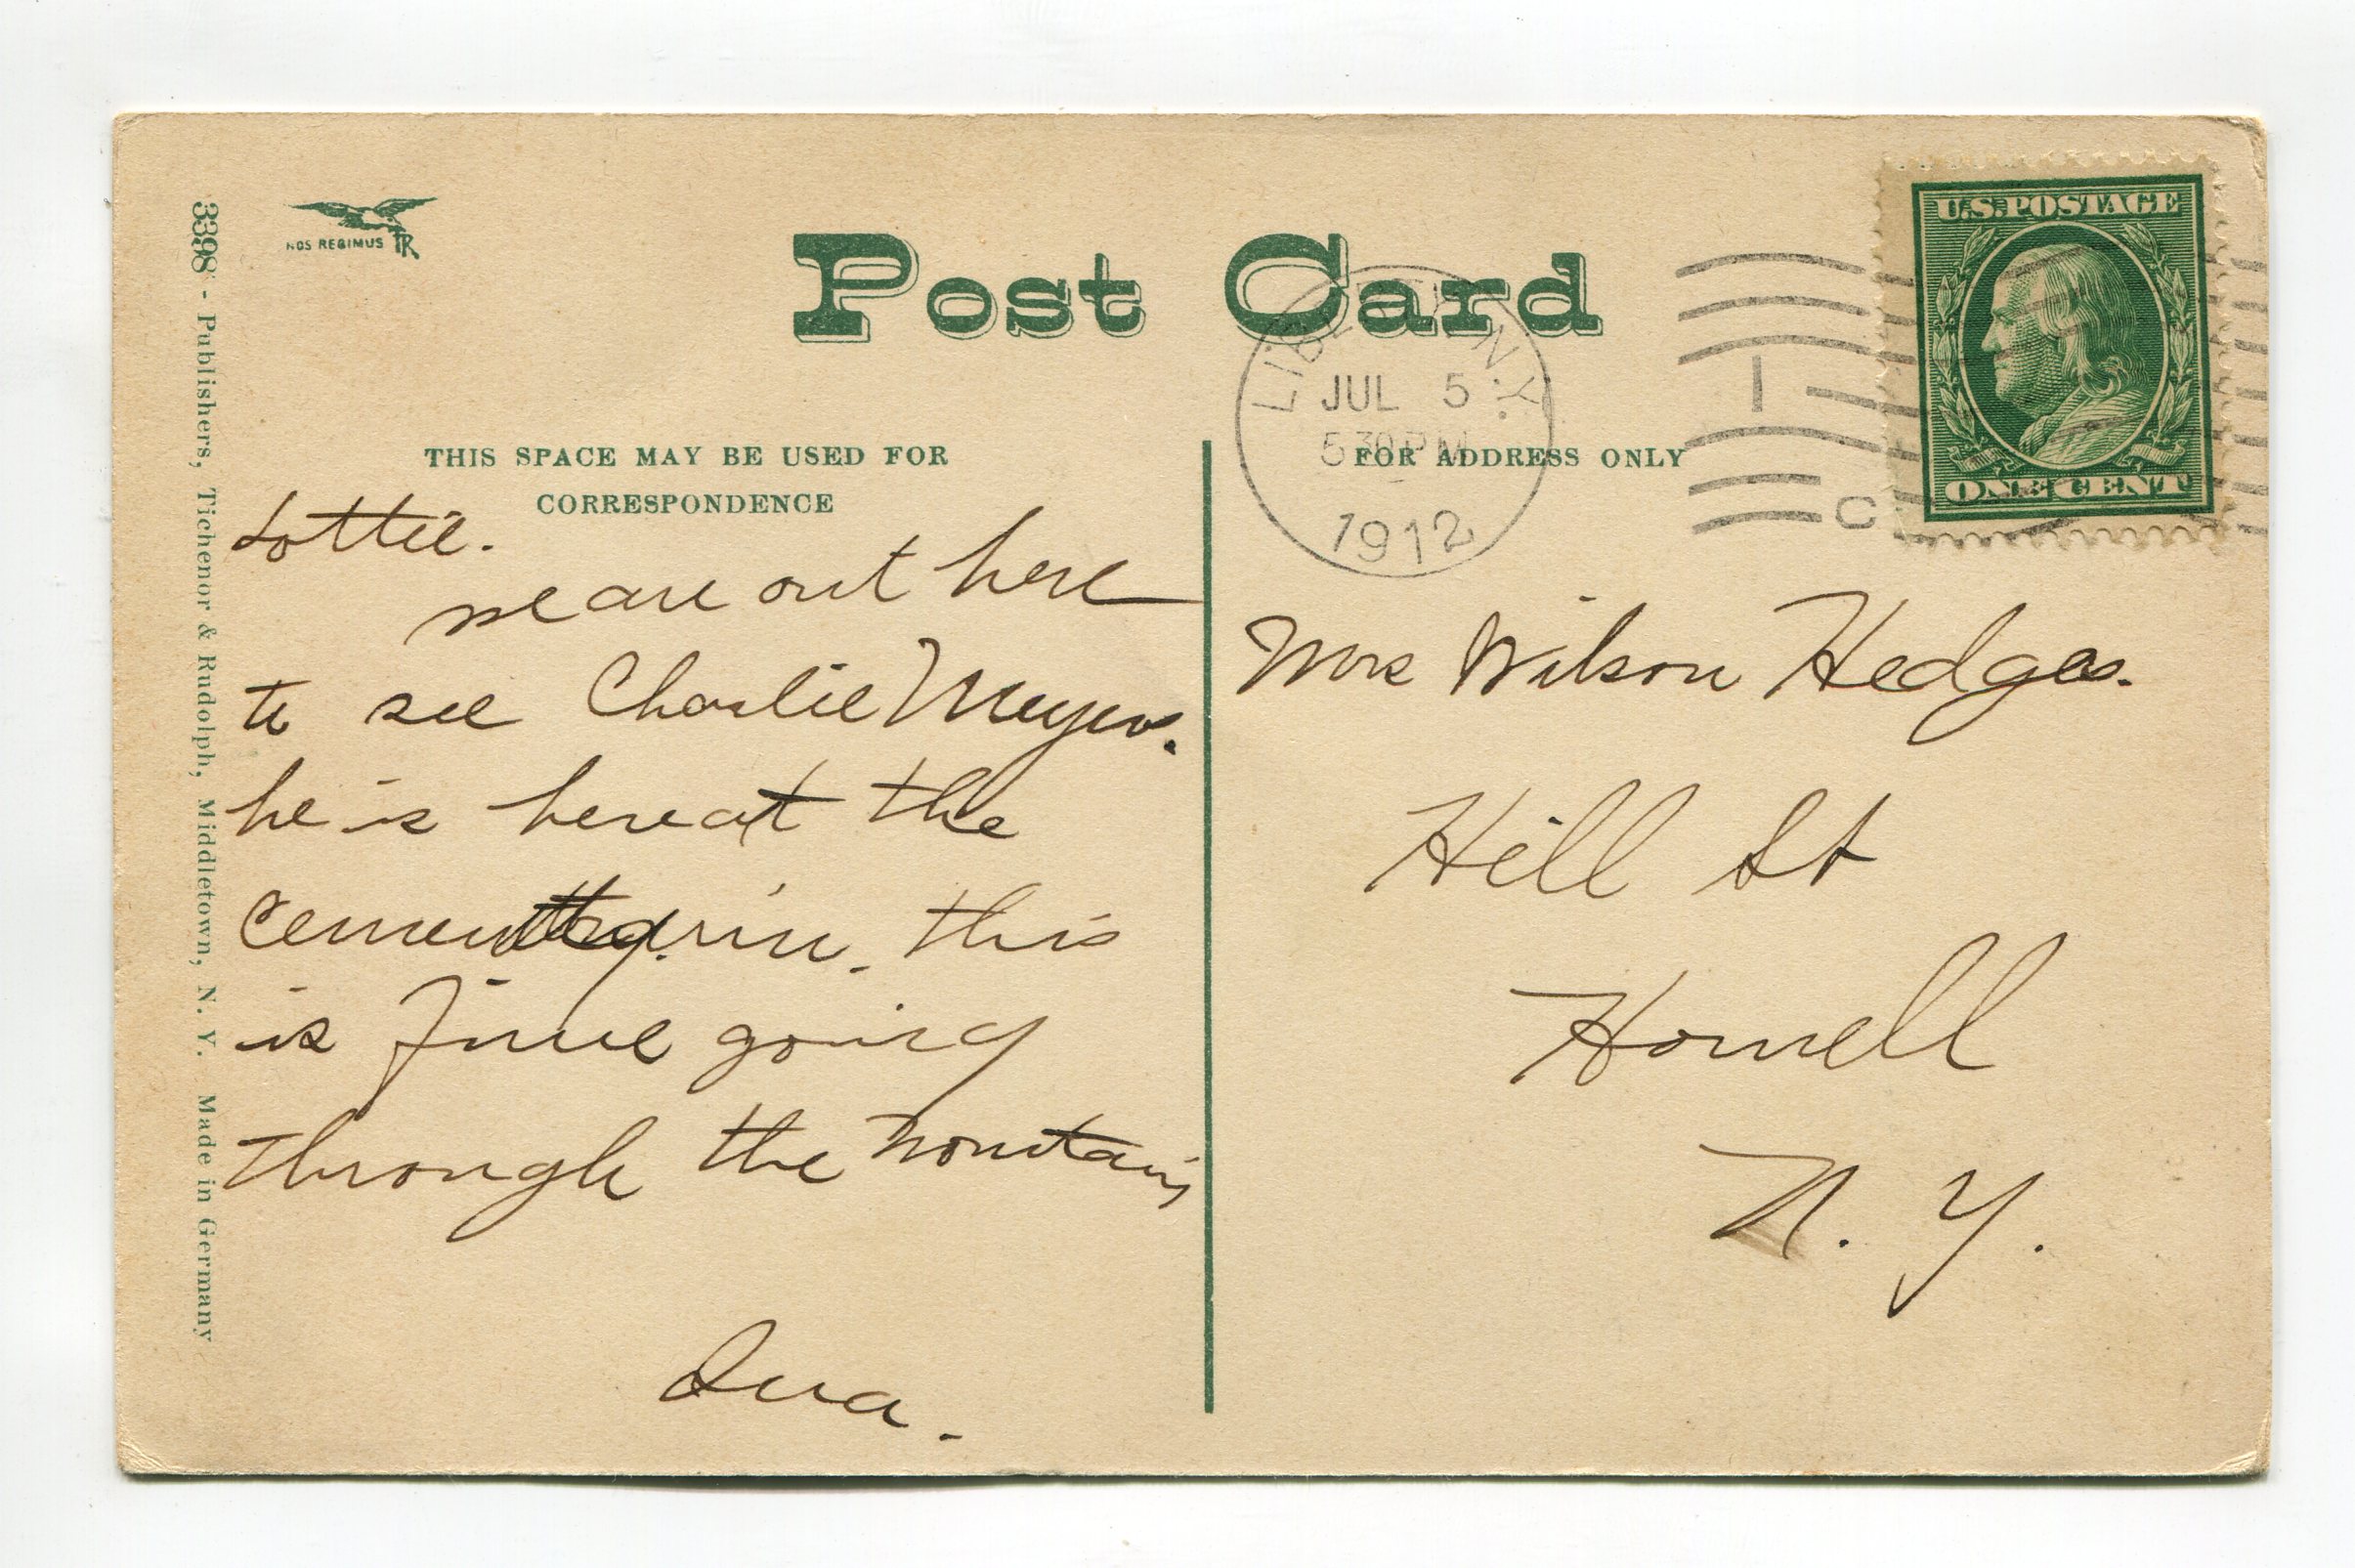 3398 - Publishers, Tichenor & Rudolph, Middletown, N. Y. Made in Germany
NOS REGIMUS TR
Post Card
THIS SPACE MAY BE USED FOR
CORRESPONDENCE
Lottie.
we are out here
to see Charlie Meyers.
he is here at the
this
is fine going
through the Mountains
Iva.
U.S. POSTAGE
ONE CENT
LIBERTY N.Y.
JUL 5
5 30 PM
1912
1
C
FOR ADDRESS ONLY
Mrs Wilson Hedges.
Hill St
Hornell
N. Y.